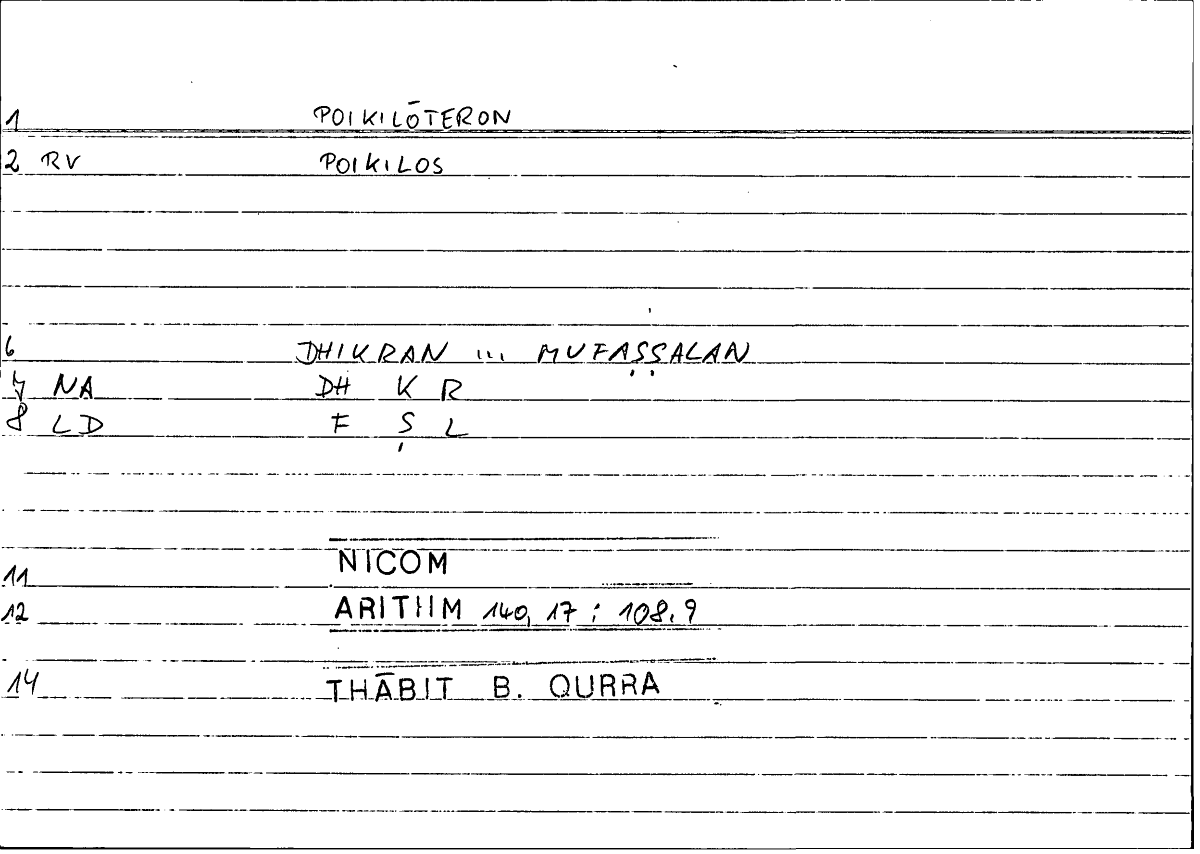 1 POIKILŌTERON
2 RV POIKILOS
6 DHIKRAN ... MUFAṢṢALAN
7 NA DH K R
8 LD F Ṣ L
11 NICOM
12 ARITHM 140, 17 : 108.9
14 THĀBIT B. QURRA